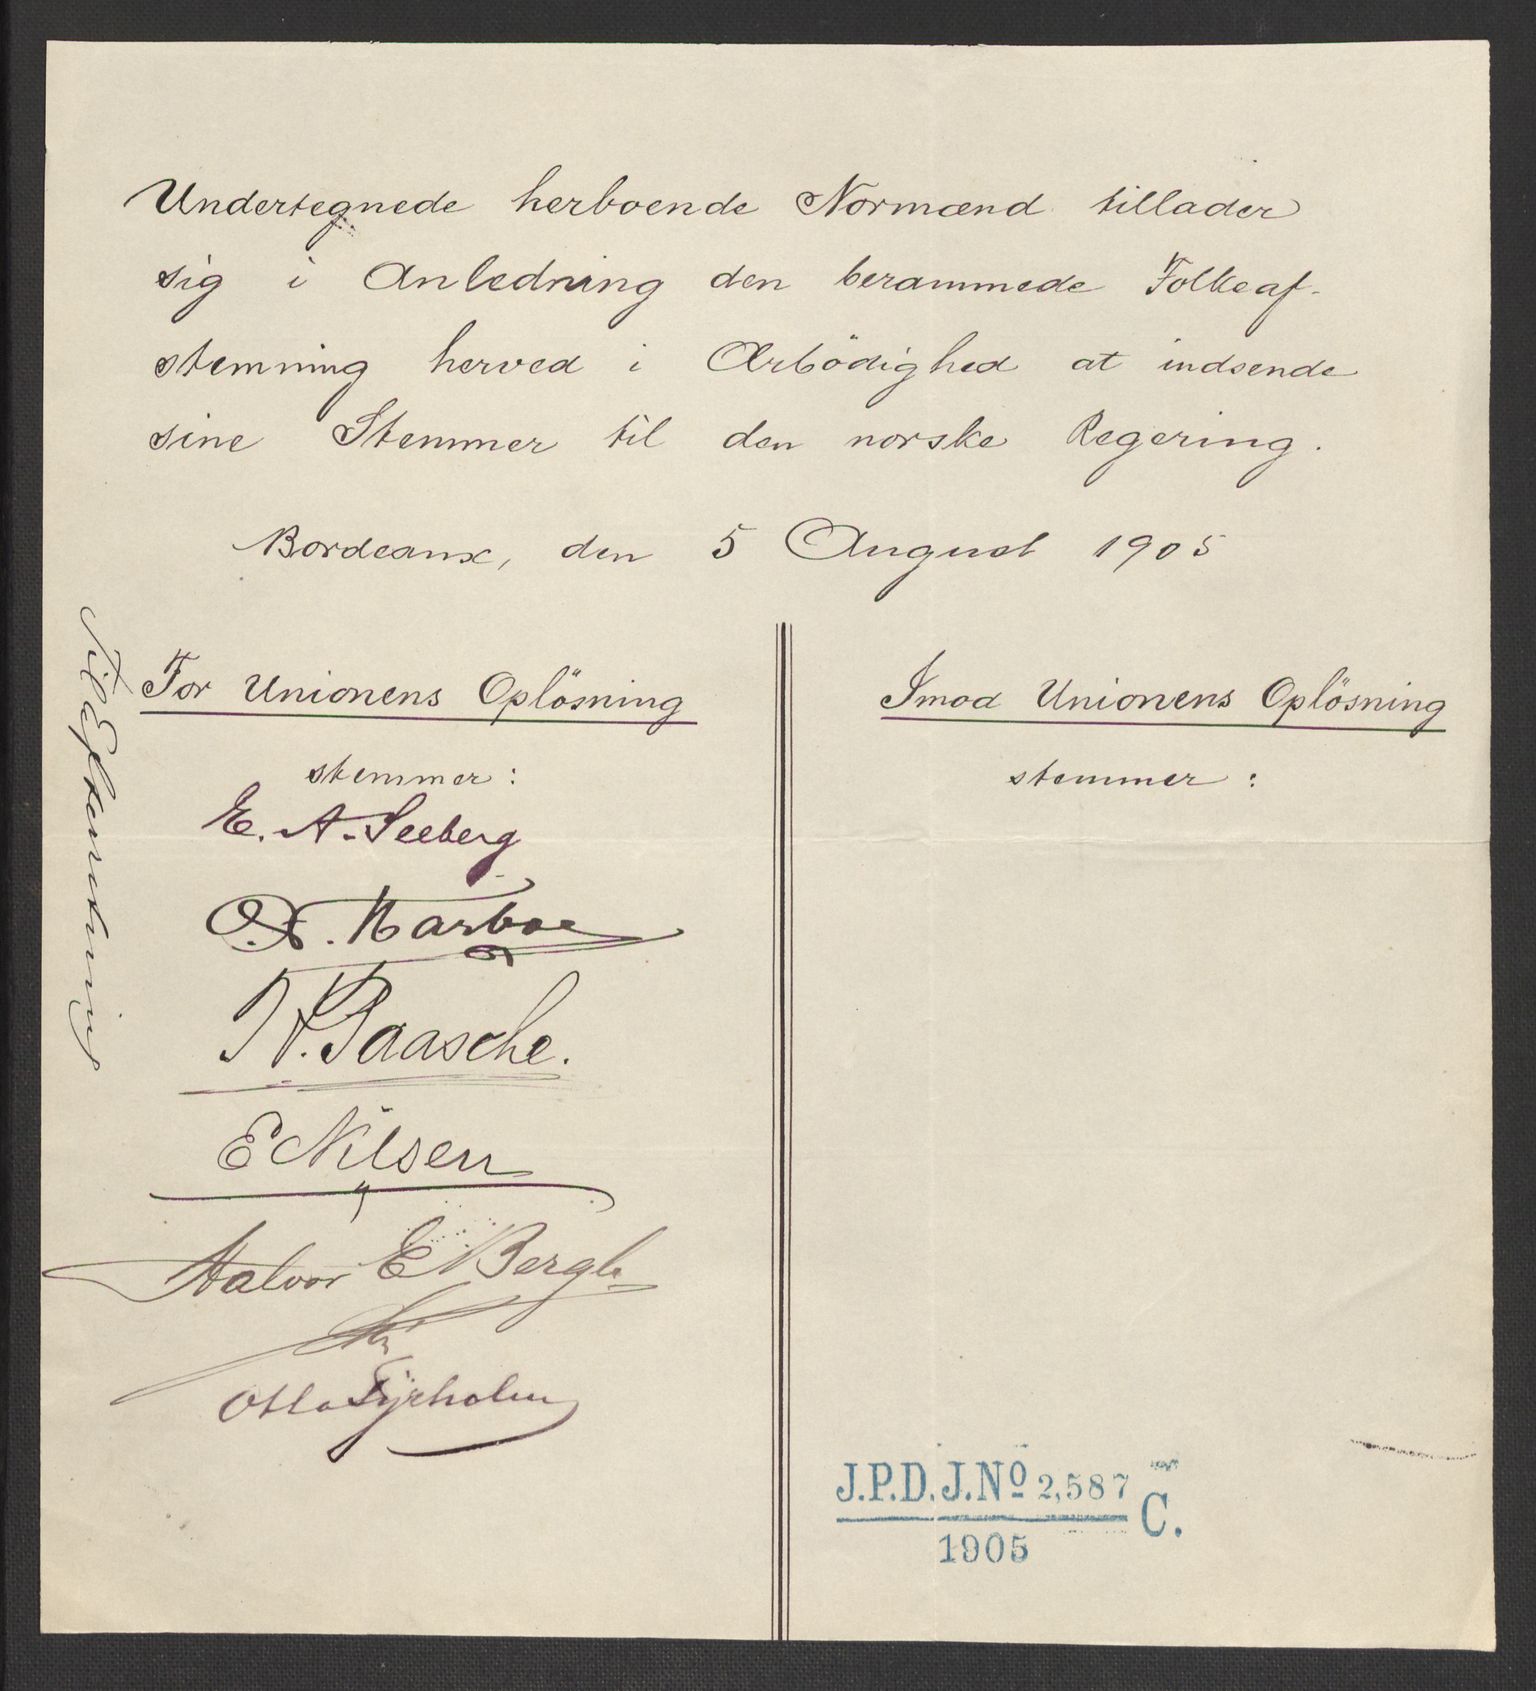 Undertegnede herboende Normænd tillader
sig i Anledning den berammede Folkeaf-
stemning herved i Ærbödighed at indsende
sine Stemmer til den norske Regering.
Bordeaux, den 5 August 1905
For Unionens Oplösning
stemmer:
E. A. Seeberg
Narboe
N. Paasche.
E Nilsen
Halvor E Bergh
Otto Fyrholm
Imod Unionens Oplösning
stemmer:
J.P.D. J.Nº 2,587 C.
1905